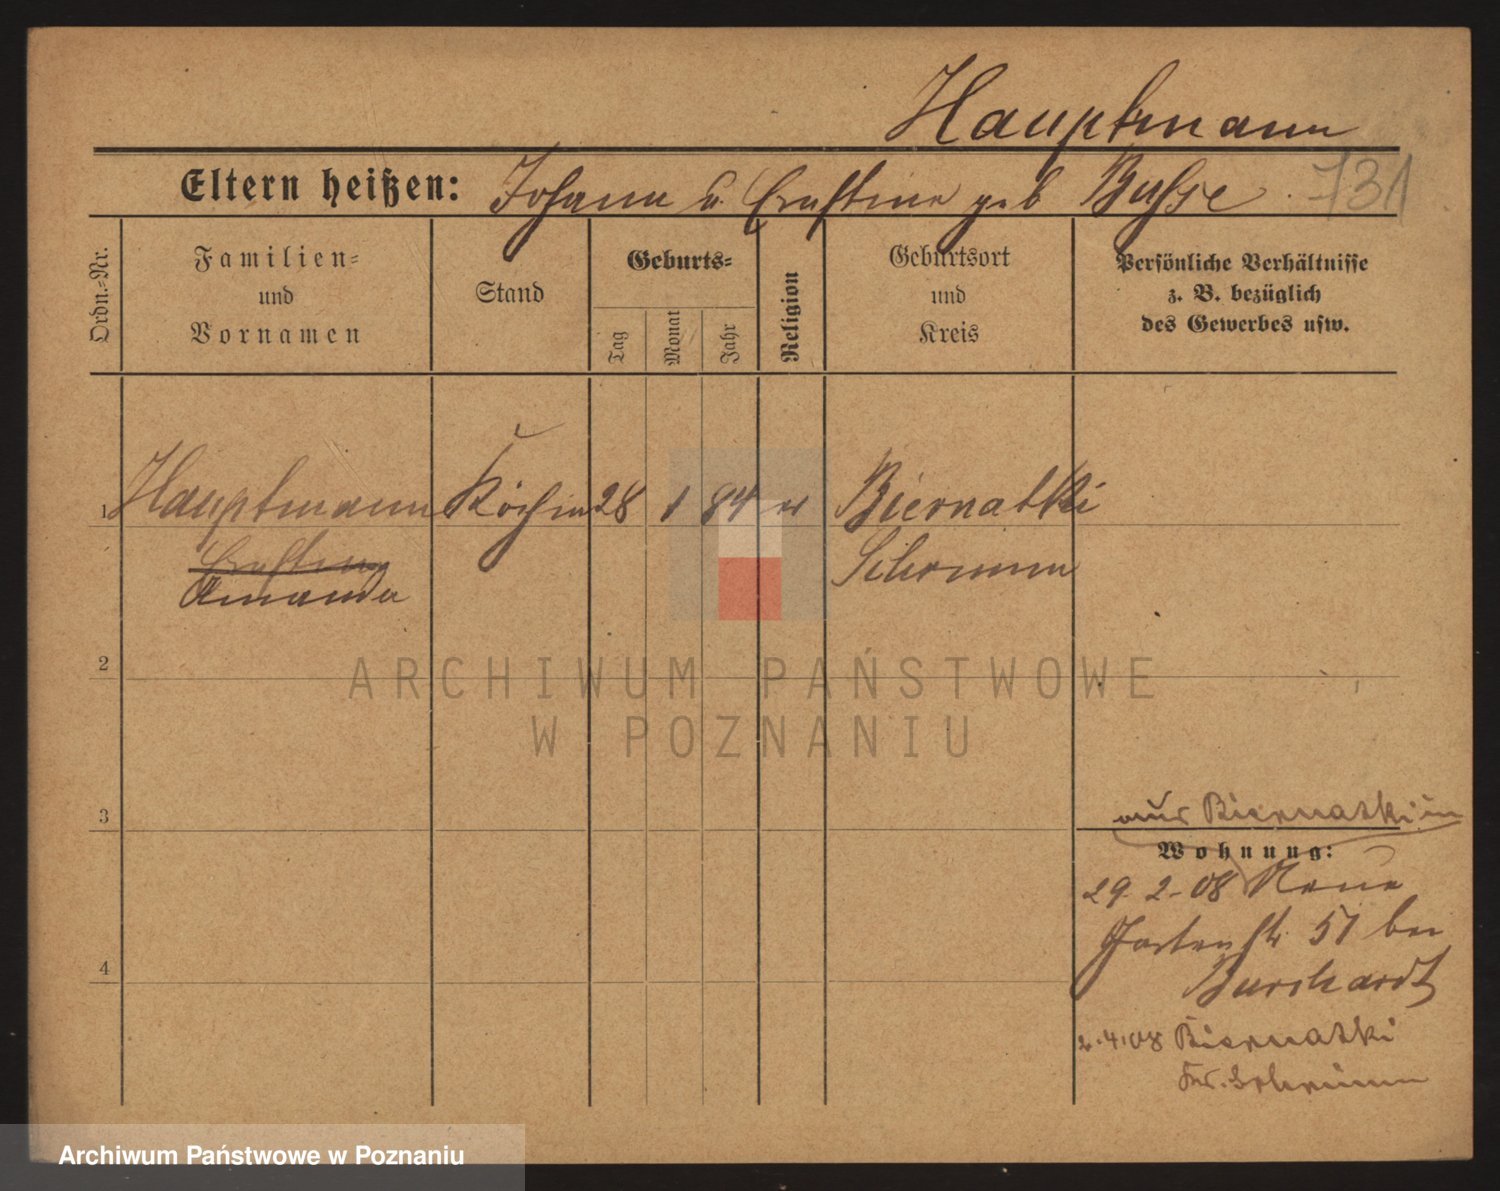 Hauptmann
Eltern heißen: Johann u. Ernstine geb Busse 731
Ordn.-Nr.
Familien-
und
Vornamen
Stand
Geburts-
Tag
Monat
Jahr
Religion
Geburtsort
und
Kreis
Persönliche Verhältnisse
z. B. bezüglich
des Gewerbes usw.
1 Hauptmann Köchin 28 1 84 ev Biernatki
Ernstine Schrimm
Amanda
2
ARCHIWUM PAŃSTWOWE
W POZNANIU
3
aus Biernatki
Wohnung:
29 2 - 08 Neue
Gartenstr 57 bei
4
Burchardt
2.4.08 Biernatki
Kr. Schrimm
Archiwum Państwowe w Poznaniu